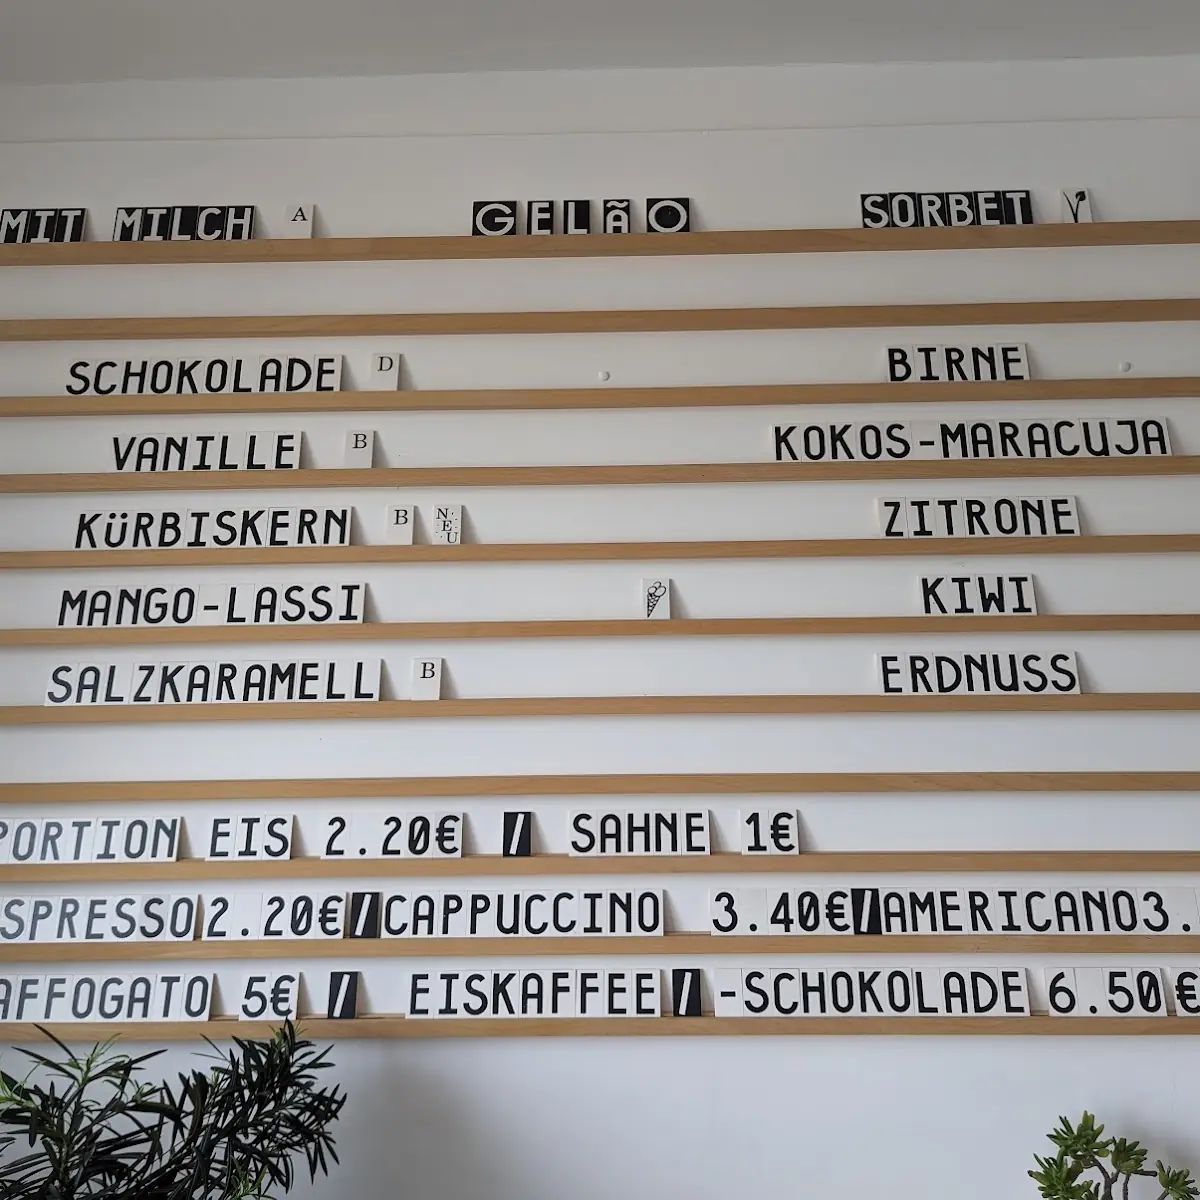 MIT MILCH A GELÃO SORBET
SCHOKOLADE D BIRNE
VANILLE B KOKOS-MARACUJA
KÜRBISKERN B NEU ZITRONE
MANGO-LASSI KIWI
SALZKARAMELL B ERDNUSS
PORTION EIS 2.20€ / SAHNE 1€
SPRESSO 2.20€ / CAPPUCCINO 3.40€ / AMERICANO 3.
AFFOGATO 5€ / EISKAFFEE / -SCHOKOLADE 6.50€